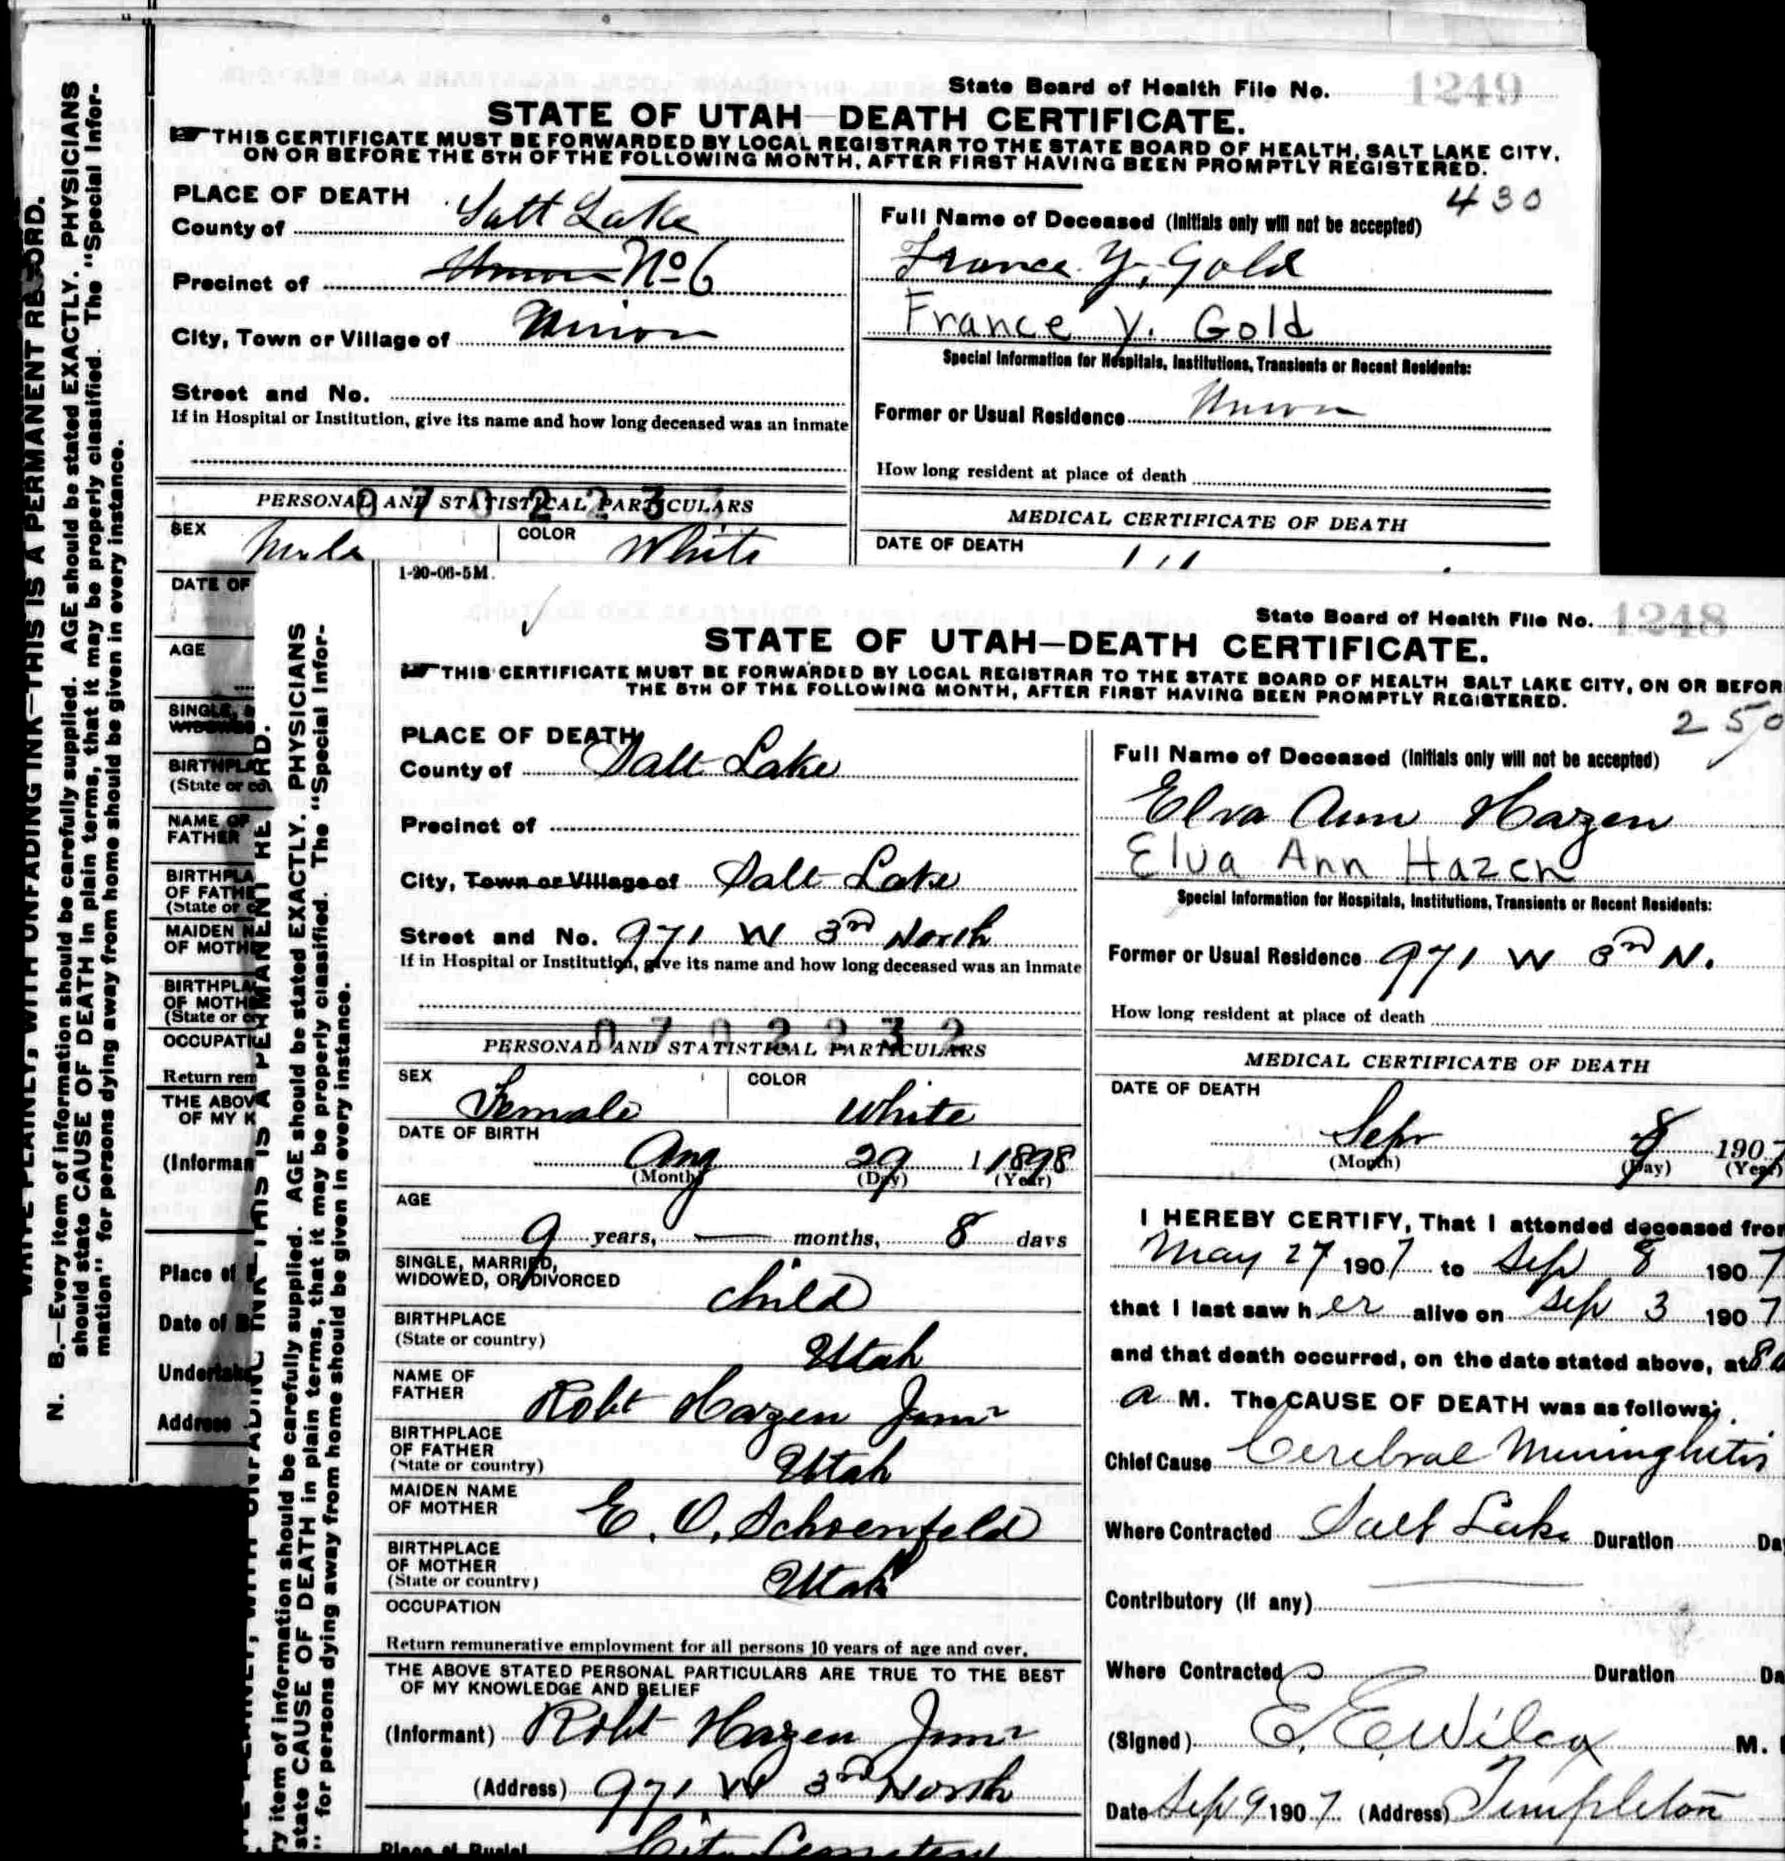 State Board of Health File No. 1249
STATE OF UTAH—DEATH CERTIFICATE.
THIS CERTIFICATE MUST BE FORWARDED BY LOCAL REGISTRAR TO THE STATE BOARD OF HEALTH, SALT LAKE CITY,
ON OR BEFORE THE 5TH OF THE FOLLOWING MONTH, AFTER FIRST HAVING BEEN PROMPTLY REGISTERED.
430
PLACE OF DEATH
County of Salt Lake
Precinct of Union No 6
City, Town or Village of Union
Street and No.
If in Hospital or Institution, give its name and how long deceased was an inmate
Full Name of Deceased (Initials only will not be accepted)
France Y. Gold
France Y. Gold
Special Information for Hospitals, Institutions, Transients or Recent Residents:
Former or Usual Residence Union
How long resident at place of death
PERSONAL AND STATISTICAL PARTICULARS
SEX Male COLOR White
MEDICAL CERTIFICATE OF DEATH
DATE OF DEATH
DATE OF
AGE
SINGLE,
BIRTHPLA
(State or co
NAME OF
FATHER
BIRTHPLA
OF FATHE
(State or c
MAIDEN N
OF MOTH
BIRTHPLA
OF MOTH
(State or c
OCCUPATI
Return rem
THE ABOV
OF MY K
(Informan
Place of
Date of B
Undertake
Address
WRITE PLAINLY, WITH UNFADING INK—THIS IS A PERMANENT RECORD.
N. B.—Every item of information should be carefully supplied. AGE should be stated EXACTLY. PHYSICIANS
should state CAUSE OF DEATH in plain terms, that it may be properly classified. The "Special Infor-
mation" for persons dying away from home should be given in every instance.
UNFADING INK—THIS IS A PERMANENT RECORD.
ry item of information should be carefully supplied. AGE should be stated EXACTLY. PHYSICIANS
state CAUSE OF DEATH in plain terms, that it may be properly classified. The "Special Infor-
" for persons dying away from home should be given in every instance.
1-20-06-5M.
State Board of Health File No. 1248
STATE OF UTAH—DEATH CERTIFICATE.
THIS CERTIFICATE MUST BE FORWARDED BY LOCAL REGISTRAR TO THE STATE BOARD OF HEALTH SALT LAKE CITY, ON OR BEFOR
THE 5TH OF THE FOLLOWING MONTH, AFTER FIRST HAVING BEEN PROMPTLY REGISTERED.
250
PLACE OF DEATH
County of Salt Lake
Precinct of
City, Town or Village of Salt Lake
Street and No. 971 W 3rd North
If in Hospital or Institution, give its name and how long deceased was an inmate
0702232
PERSONAL AND STATISTICAL PARTICULARS
SEX Female COLOR White
DATE OF BIRTH
Aug 29 1898
(Month) (Day) (Year)
AGE
9 years, — months, 8 days
SINGLE, MARRIED,
WIDOWED, OR DIVORCED child
BIRTHPLACE
(State or country) Utah
NAME OF
FATHER Robt Hazen Junr
BIRTHPLACE
OF FATHER
(State or country) Utah
MAIDEN NAME
OF MOTHER E. O. Schoenfeld
BIRTHPLACE
OF MOTHER
(State or country) Utah
OCCUPATION
Return remunerative employment for all persons 10 years of age and over.
THE ABOVE STATED PERSONAL PARTICULARS ARE TRUE TO THE BEST
OF MY KNOWLEDGE AND BELIEF
(Informant) Robt Hazen Junr
(Address) 971 W 3rd North
Place of Burial City Cemetery
Full Name of Deceased (Initials only will not be accepted)
Elva Ann Hazen
Elva Ann Hazen
Special Information for Hospitals, Institutions, Transients or Recent Residents:
Former or Usual Residence 971 W 3rd N.
How long resident at place of death
MEDICAL CERTIFICATE OF DEATH
DATE OF DEATH
Sep 8 1907
(Month) (Day) (Year)
I HEREBY CERTIFY, That I attended deceased from
May 27 1907 to Sep 8 1907
that I last saw her alive on Sep 3 1907
and that death occurred, on the date stated above, at 8
a M. The CAUSE OF DEATH was as follows:
Chief Cause Cerebral Meninghitis
Where Contracted Salt Lake Duration Da
Contributory (If any)
Where Contracted Duration Da
(Signed) E. E. Wilcox M.
Date Sep 9 1907 (Address) Templeton